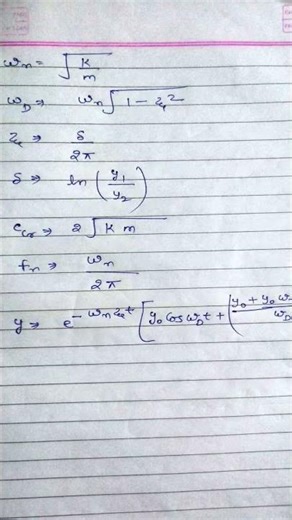 ωn = √(K/m)
ωD ⇒ ωn √(1 - ξ²)
ξ ⇒ δ/2π
δ ⇒ ln (y1/y2)
Ccr ⇒ 2 √(K m)
fn ⇒ ωn/2π
y ⇒ e^(-ωn ξ t) [y0 cos ωD t + (y0 + y0 ω
ωD